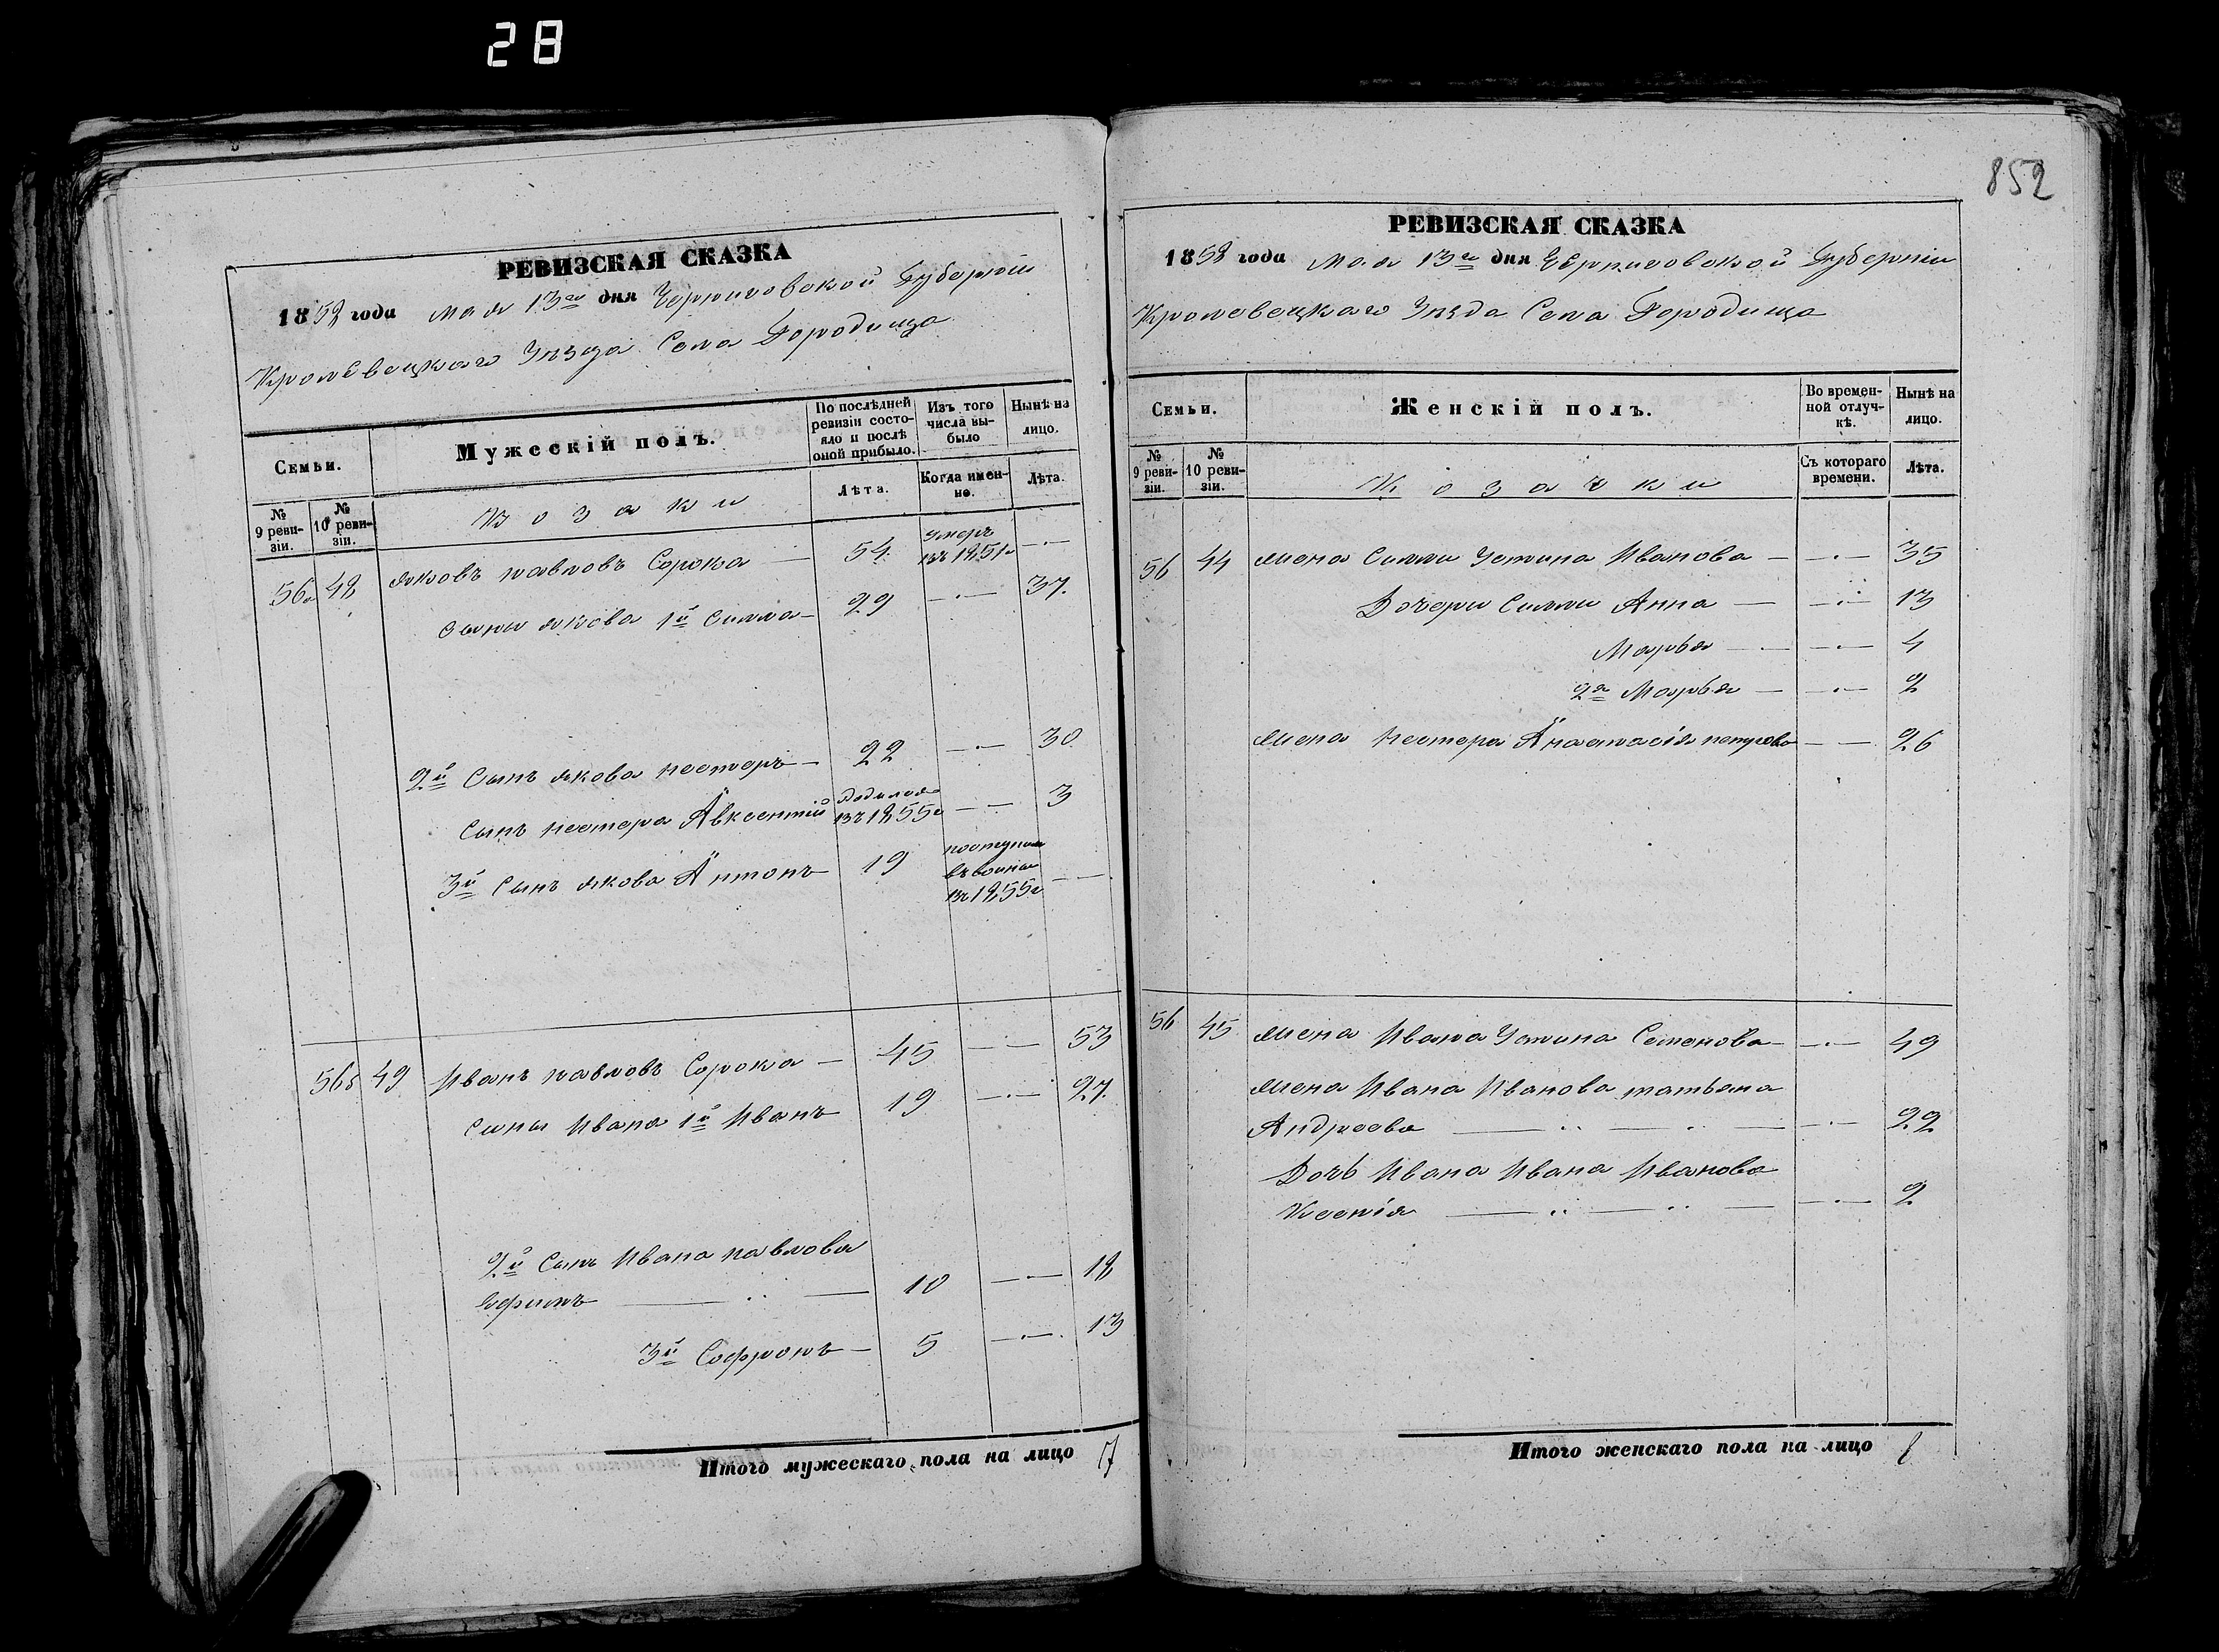 28
852
РЕВИЗСКАЯ СКАЗКА
1858 года мая 13го дня Черниговской Губерніи
Кролевецкаго Уѣзда Села Городища
Семьи.
Мужескій полъ.
По послѣдней ревизіи состояло и послѣ оной прибыло.
Изъ того числа выбыло
Нынѣ на лицо.
№ 9 ревизіи.
№ 10 ревизіи.
Козаки
Лѣта.
Когда именно.
Лѣта.
56а 48 Яковъ павловъ Сорока — 54 Умеръ въ 1851г — · —
Сыны Якова 1й Силла — 29 — · — 37.
2й Сынъ Якова нестеръ — 22 — · — 30
Сынъ нестера Авксентий родился въ 1855г — · — 3
3й Сынъ Якова Антонъ 19 поступил въ 1855г. — —
56б 49 Иванъ павловъ Сорока — 45 — · — 53
Сыны Ивана 1й Иванъ 19 — · — 27.
2й Сынъ Ивана павлова
Ефимъ — ·· — 10 — · — 18
3й Софронъ — 5 — · — 13
Итого мужескаго пола на лицо 7
РЕВИЗСКАЯ СКАЗКА
1858 года мая 13го дня Черниговской Губерніи
Кролевецкаго Уѣзда Села Городища
Семьи.
Женскій полъ.
Во временной отлучкѣ.
Нынѣ на лицо.
№ 9 ревизіи.
№ 10 ревизіи.
Козачки
Съ котораго времени.
Лѣта.
56 44 жена Силли Устина Иванова — — · — 35
Дочери Силли Анна — — · — 13
Марья — — · — 4
2я Марья — — · — 2
жена нестера Анастасія петрова — — 26
56 45 жена Ивана Устина Семенова — — · — 49
жена Ивана Иванова татьяна
Андреева — ·· — ·· — — · — 22
Дочь Ивана Ивана Иванова
Ксенія — ·· — ·· — — · — 2
Итого женскаго пола на лицо 8